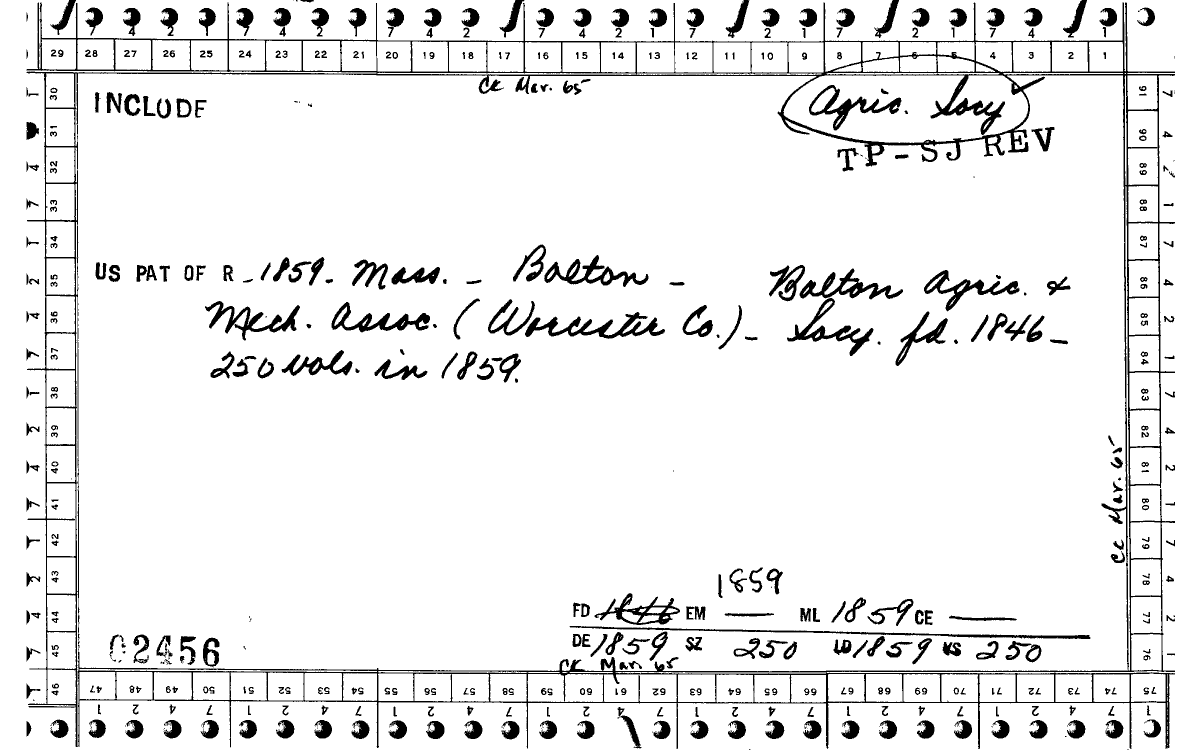 7 4 2 1 7 4 2 1 7 4 2 1 7 4 2 1 7 4 2 1 7 4 2 1 7 4 2 1
29 28 27 26 25 24 23 22 21 20 19 18 17 16 15 14 13 12 11 10 9 8 7 6 5 4 3 2 1
CK Mar. 65
INCLUDE
Agric. Socy
TP-SJ REV
US PAT OF R - 1859 - Mass. - Bolton - Bolton Agric. &
Mech. Assoc. (Worcester Co.) - Socy. fd. 1846 -
250 vols. in 1859.
CK Mar. 65
1859
FD 1846 EM — ML 1859 CE —
DE 1859 SZ 250 LD 1859 VS 250
CK Mar. 65
02456
30 31 32 33 34 35 36 37 38 39 40 41 42 43 44 45 46
91 90 89 88 87 86 85 84 83 82 81 80 79 78 77 76
47 48 49 50 51 52 53 54 55 56 57 58 59 60 61 62 63 64 65 66 67 68 69 70 71 72 73 74 75
1 2 4 7 1 2 4 7 1 2 4 7 1 2 4 7 1 2 4 7 1 2 4 7 1 2 4 7 1